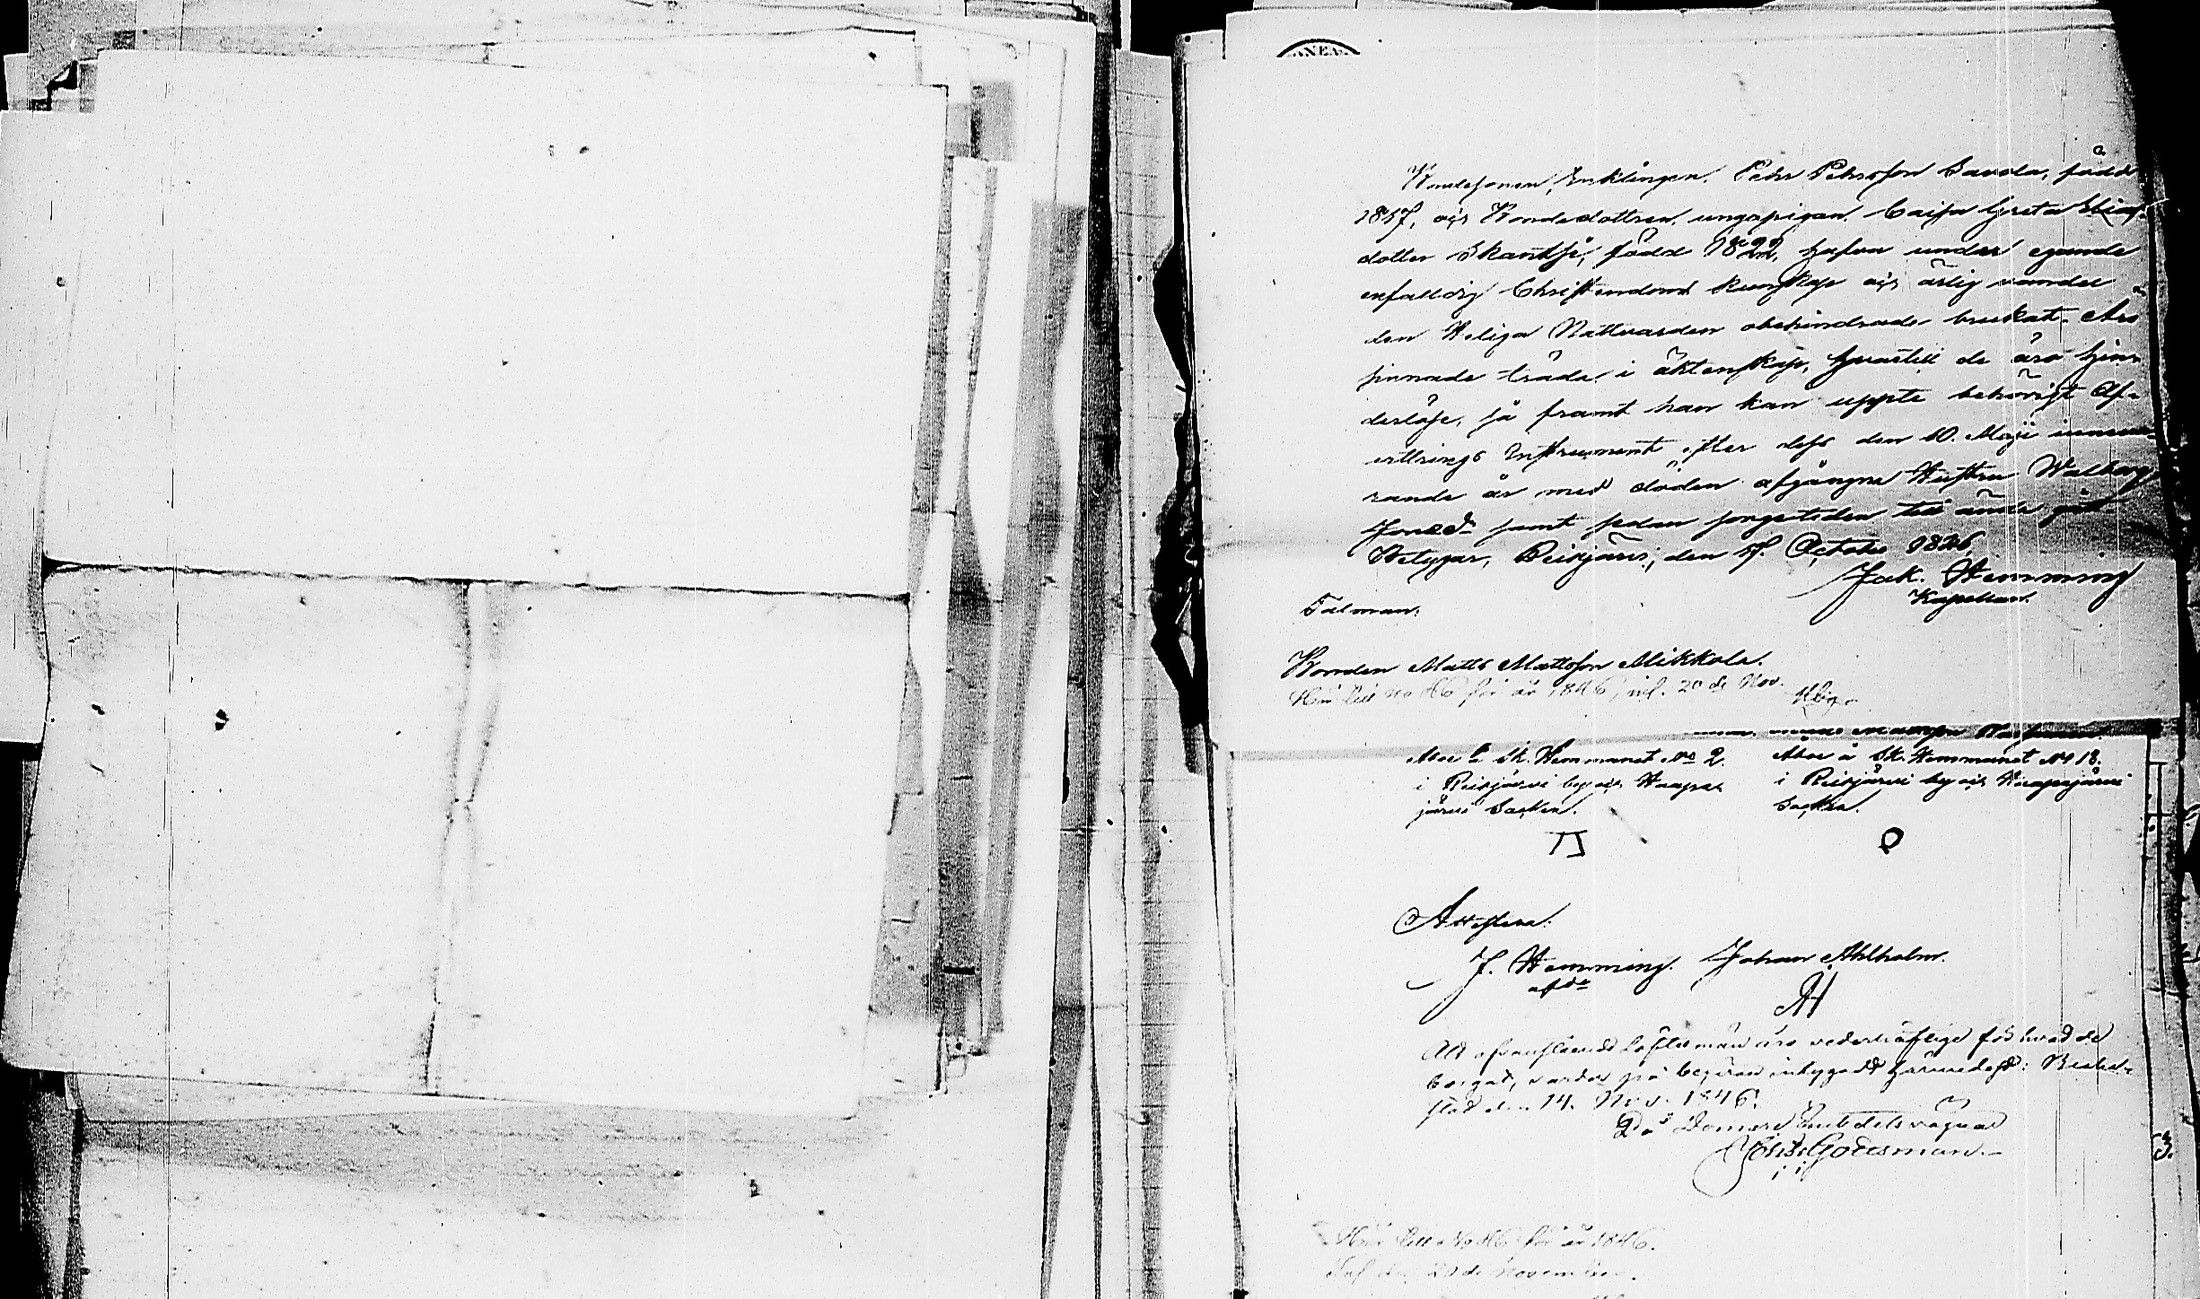 Bondesonen, Enklingen, Pehr Pehrsson Savola, född
1817, och Bondedottren, ungapigan Caisa Greta
dotter Skantsi, född 1822, hafva under egande
enfalldig Christendoms kunskap och ärlig vandel
den Heliga Nattvarden obehindrade brukat. Äro
sinnade träda i äktenskap, hvartill de äro hin-
derlöse, så framt han kan uppte behörigt Af-
vittrings Instrument efter dess den 10. Maji innewa-
rande år med döden afgångne Hustru Walborg
Jonsdr samt sedan sorgetiden till ända gått
Betygar, Reisjärvi, den 17 October 1846.
Jak. Hemming
Kapellan.
Talman:
Bonden Matts Mattsson Mikkola.
Hör till No 86 för år 1846, inl. 20 de Nov.
Åboe å Sk. Hemmanet No 2.
i Reisjärvi by och Haapa-
järvi Socken.
Åboe å Sk. Hemmanet No 18.
i Reisjärvi by och Haapajärvi
Socken.
Attestera:
J. Hemming. Johan Ahlholm.
Att ofvanstående Löftesmän äro vederhäftige för hvad de
borgat, varder på begäran intygadt härmedelst:
stad den 14. Nov. 1846.
På Domare Embetets vägnar
Godesman.
Hör till No 86 för år 1846.
Inl den 20 de November.